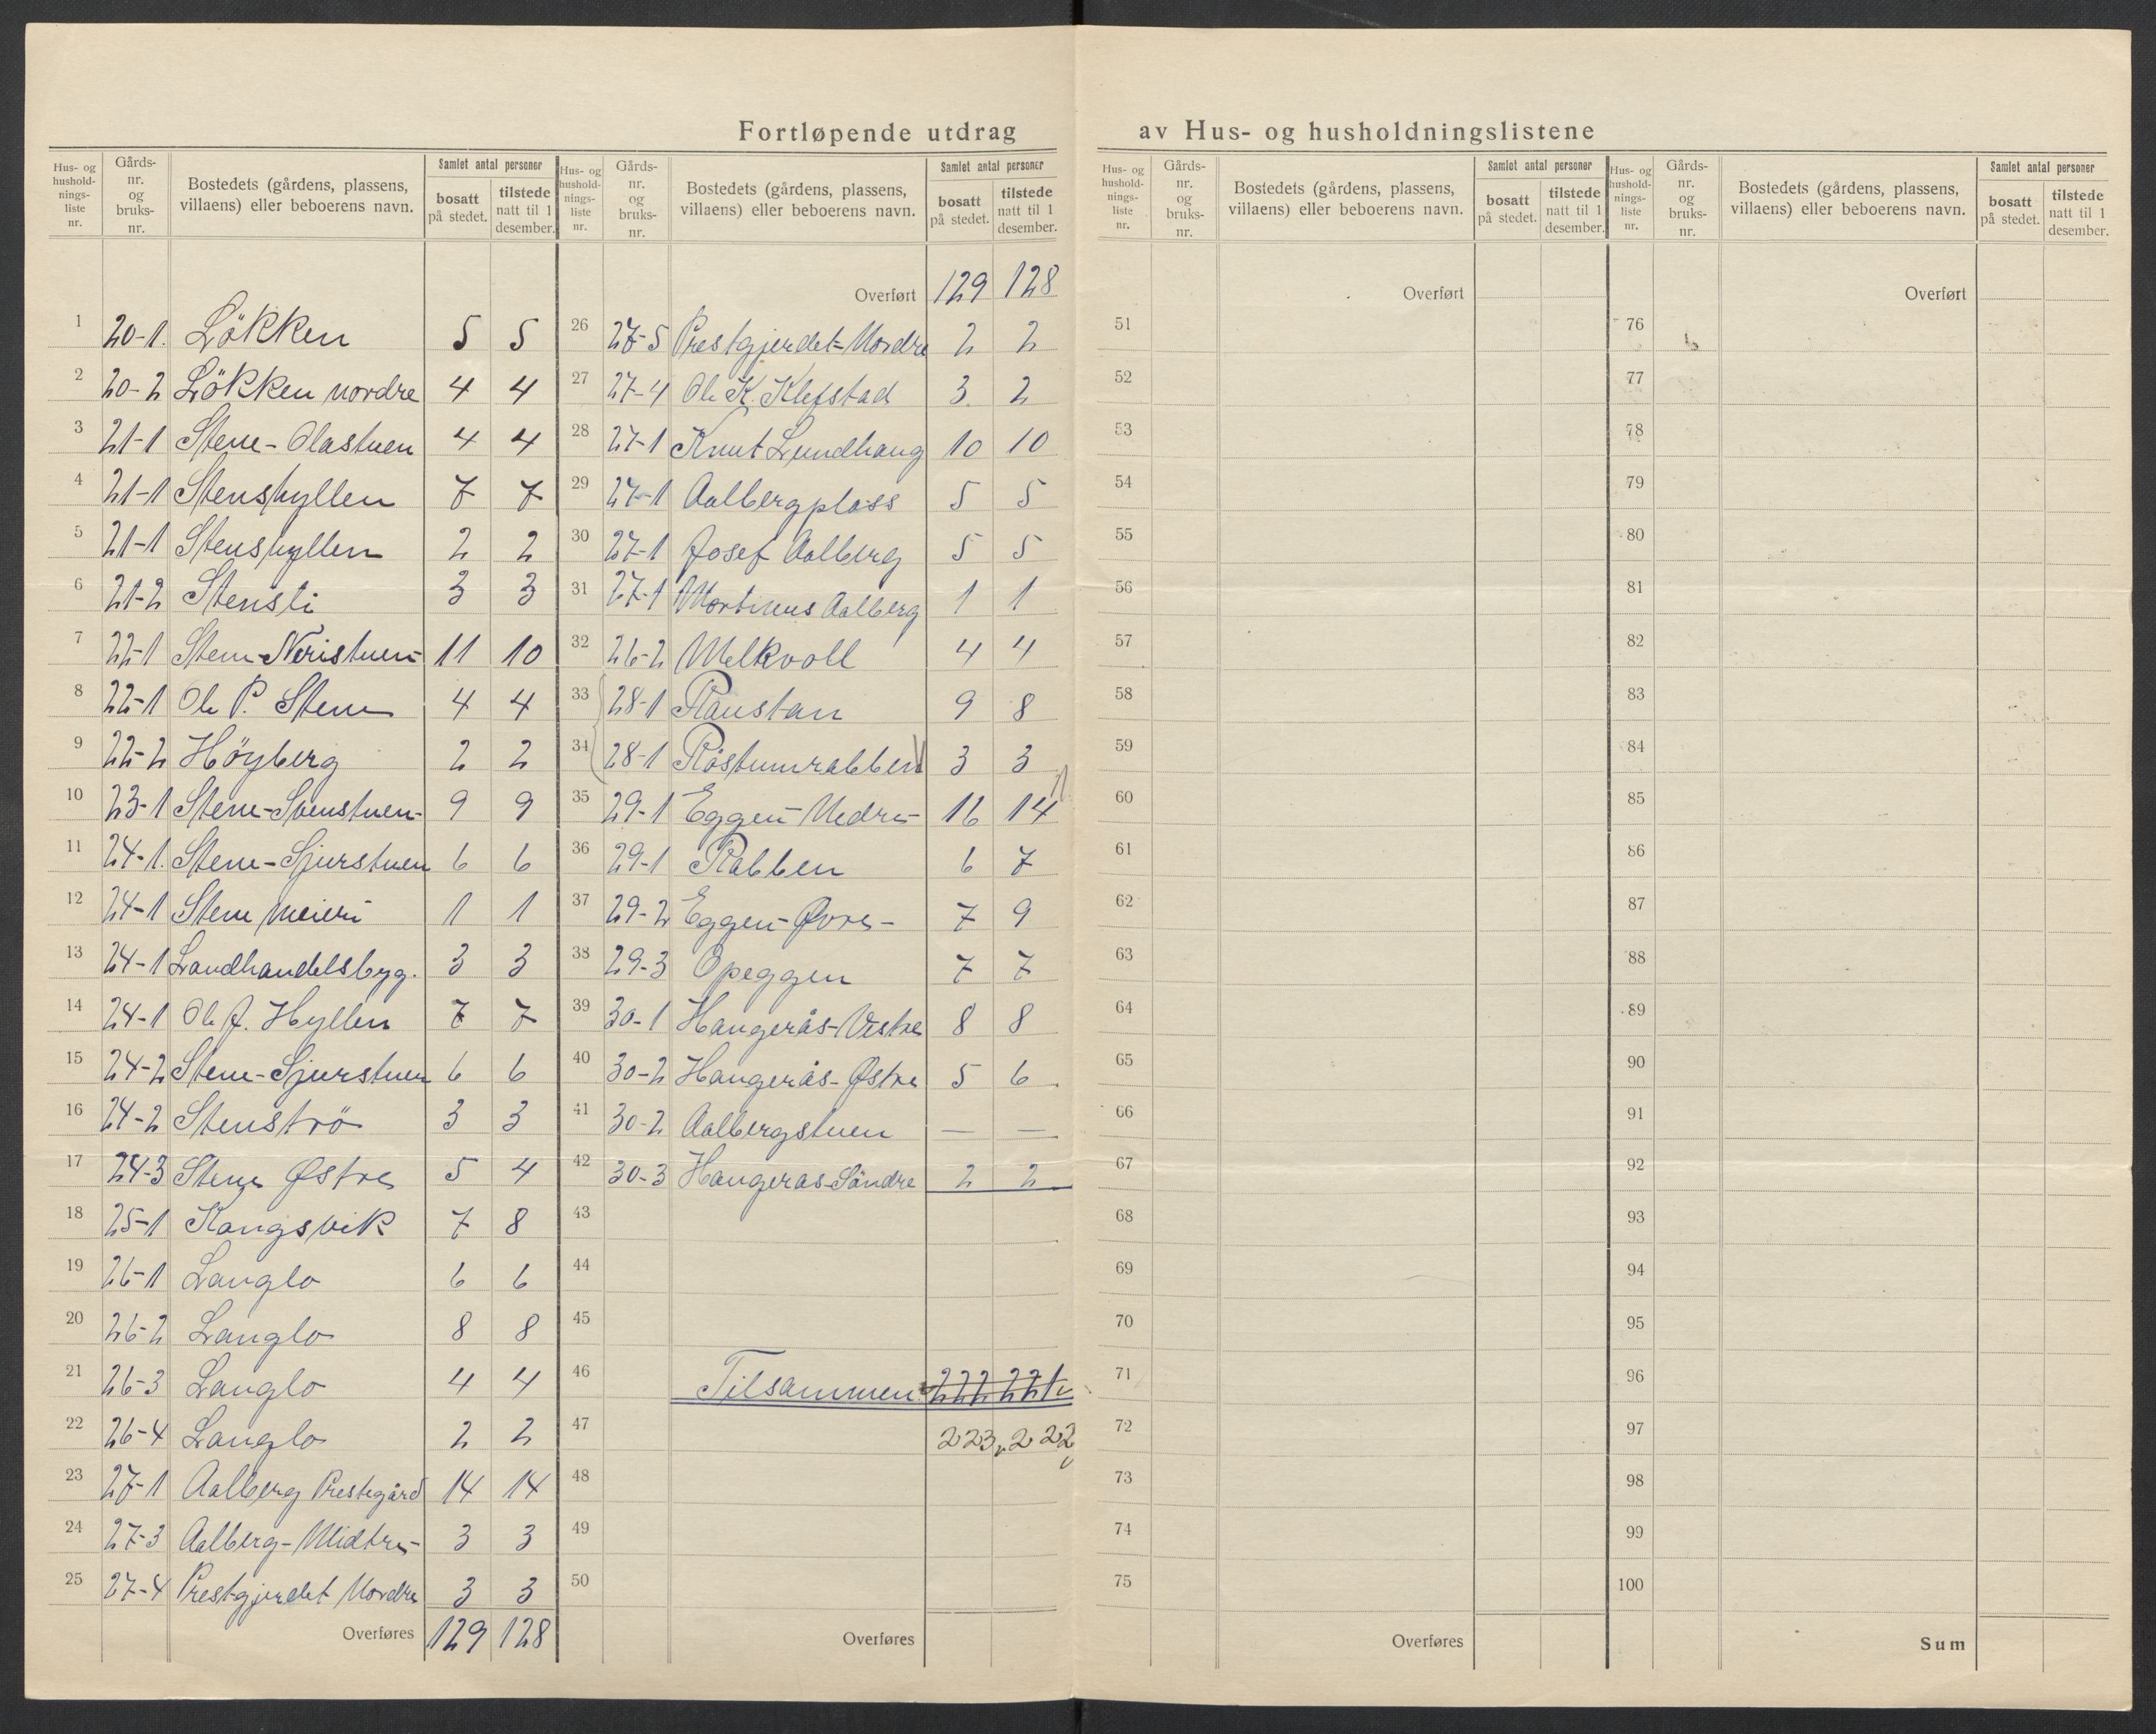 Fortløpende utdrag av Hus- og husholdningslistene
Hus- og husholdnings-liste nr. Gårds-nr. og bruks-nr. Bostedets (gårdens, plassens, villaens) eller beboerens navn. Samlet antal personer bosatt på stedet. tilstede natt til 1 desember.
1 20-1. Lökken 5 5
2 20-2 Lökken nordre 4 4
3 21-1 Stene-Olastuen 4 4
4 21-1 Stenshyllen 7 7
5 21-1 Stenshyllen 2 2
6 21-2 Stensli 3 3
7 22-1 Stene-Neristuen- 11 10
8 22-1 Ole P. Stene 4 4
9 22-2 Höyberg 2 2
10 23-1 Stene-Svenstuen- 9 9
11 24-1. Stene-Sjurstuen 6 6
12 24-1 Stene meieri 1 1
13 24-1 Landhandelsbyg. 3 3
14 24-1 Ole J. Hyllen 7 7
15 24-2 Stene-Sjurstuen 6 6
16 24-2 Stenströ 3 3
17 24-3 Stene Østre 5 4
18 25-1 Kangsvik 7 8
19 26-1 Langlo 6 6
20 26-2 Langlo 8 8
21 26-3 Langlo 4 4
22 26-4 Langlo 2 2
23 27-1 Aalberg Prestegård 14 14
24 27-3 Aalberg-Midtre- 3 3
25 27-4 Prestgjerdet Nordre 3 3
Overføres 129 128
Hus- og husholdnings-liste nr. Gårds-nr. og bruks-nr. Bostedets (gårdens, plassens, villaens) eller beboerens navn. Samlet antal personer bosatt på stedet. tilstede natt til 1 desember.
Overført 129 128
26 27-5 Prestgjerdet-Nordre 2 2
27 27-4 Ole K. Klefstad 3 2
28 27-1 Knut Lundhaug 10 10
29 27-1 Aalbergplass 5 5
30 27-1 Josef Aalberg 5 5
31 27-1 Martinus Aalberg 1 1
32 26-2 Melkvoll 4 4
33 28-1 Raustan 9 8
34 28-1 3 3
35 29-1 Eggen-Nedre- 14
36 29-1 Rabben 6 7
37 29-2 Eggen-Øvre- 7 9
38 29-3 Opeggen 7 7
39 30-1 Haugerås-Vestre 8 8
40 30-2 Haugerås-Østre 5 6
41 30-2 Aalbergstuen — —
42 30-3 Haugerås-Söndre 2 2
43
44
45
46 Tilsammen 222 221
47 223 222
48
49
50
Overføres
Hus- og husholdnings-liste nr. Gårds-nr. og bruks-nr. Bostedets (gårdens, plassens, villaens) eller beboerens navn. Samlet antal personer bosatt på stedet. tilstede natt til 1 desember.
Overført
51
52
53
54
55
56
57
58
59
60
61
62
63
64
65
66
67
68
69
70
71
72
73
74
75
Overføres
Hus- og husholdnings-liste nr. Gårds-nr. og bruks-nr. Bostedets (gårdens, plassens, villaens) eller beboerens navn. Samlet antal personer bosatt på stedet. tilstede natt til 1 desember.
Overført
76
77
78
79
80
81
82
83
84
85
86
87
88
89
90
91
92
93
94
95
96
97
98
99
100
Sum